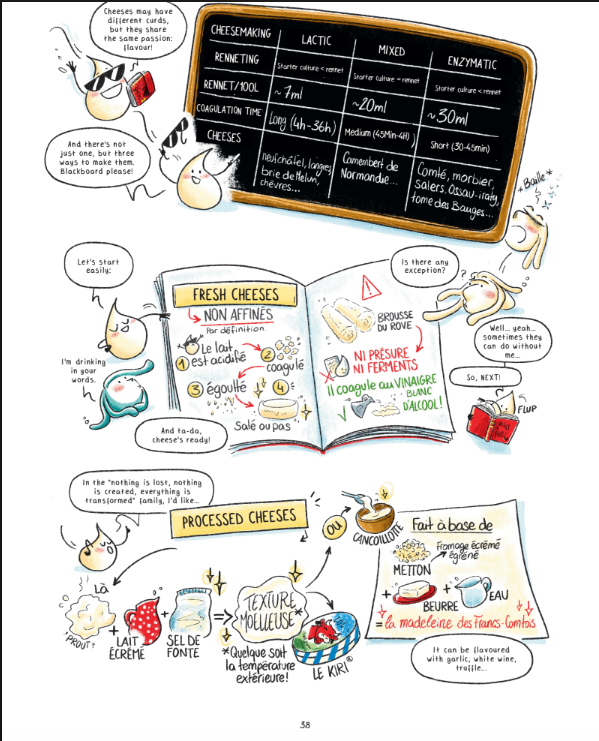 Cheeses may have
different curds,
but they share
the same passion:
flavour!
And there's not
just one, but three
ways to make them.
Blackboard please!
CHEESEMAKING LACTIC MIXED ENZYMATIC
RENNETING Starter culture < rennet Starter culture = rennet Starter culture < rennet
RENNET/100L ~7ml ~20ml ~30ml
COAGULATION TIME Long (4h-36h) Medium (45Min-4H) Short (30-45min)
CHEESES
neufchâtel, langres,
brie de Melun,
chèvres...
Camembert de
Normandie...
Comté, morbier,
salers, Ossau-iraty,
tome des Bauges...
*Baille*
Let's start
easily:
I'm drinking
in your
words.
FRESH CHEESES
NON AFFINÉS
Par définition
1 Le lait
est acidifié
2
coagulé
3 égoutté
4
Salé ou pas
And ta-da,
cheese's ready!
Is there any
exception?
?
BROUSSE
DU ROVE
NI PRÉSURE
NI FERMENTS
Il coagule au VINAIGRE
BLANC
D'ALCOOL!
Well... yeah...
sometimes they
can do without
me...
So, NEXT!
FLUP
In the "nothing is lost, nothing
is created, everything is
transformed" family, I'd like...
PROCESSED CHEESES
Là
"PROUT?"
+
LAIT
ÉCRÉMÉ
+
SEL DE
FONTE
=>
TEXTURE
MOELLEUSE*
*Quelque soit
la température
extérieure!
LE KIRI®
OU
CANCOILLOTTE
Fait à base de
METTON
Fromage écrémé
égréné
+
BEURRE
+
EAU
= la madeleine des Francs-Comtois
It can be flavoured
with garlic, white wine,
truffle...
38